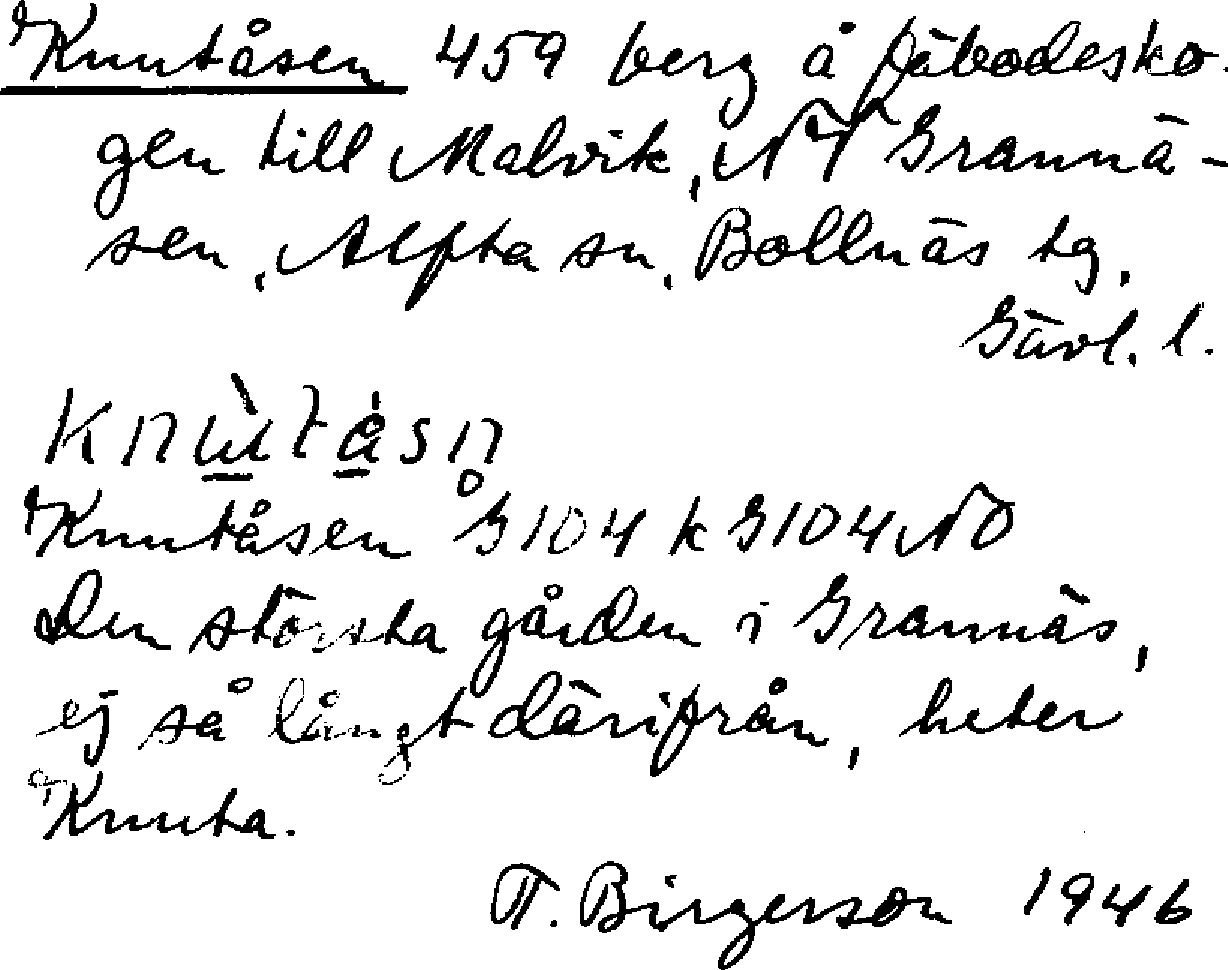 Knutåsen 459 berg å fäbodesko-
gen till Malvik, NV Grannä-
sen, Alfta sn, Bollnäs tg,
Gävl. l.
knù̲tå̲sn
Knutåsen G104 k G104 NO
Den största gården i Grannäs,
ej så långt därifrån, heter
Knuta.
T. Birgerson 1946